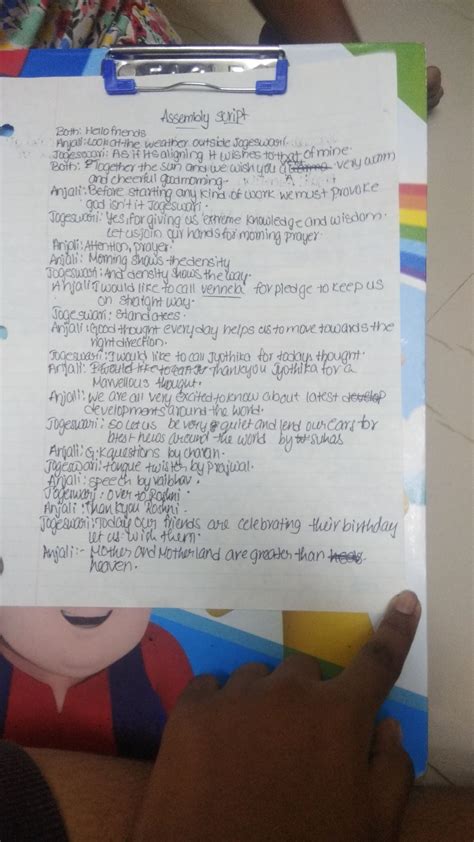 Assembly script
Both: Hello friends
Anjali: Look at the weather outside Jogeswari.
Jogeswari: As if its aligning it wishes to that of mine.
Both: Together the sun and we wish you a very warm
and cheerful good morning.
Anjali: Before starting any kind of work we must provoke
god isn't it Jogeswari.
Jogeswari: Yes, for giving us extreme knowledge and wisdom.
Let us join our hands for morning prayer
Anjali: Attention, prayer.
Anjali: Morning shows the density
Jogeswari: And density shows the way.
Anjali: I would like to call vennela for pledge to keep us
on straight way.
Jogeswari: Stand atees.
Anjali: Good thought everyday helps us to move towards the
right direction.
Jogeswari: I would like to call Jyothika for todays thought.
Anjali: Thankyou Jyothika for a
Marvellous thought.
Anjali: We are all very excited to know about latest
developments around the world.
Jogeswari: So let us be very quiet and lend our ears for
best news around the world by suhas
Anjali: G.K questions by charan.
Jogeswari: tongue twister by prajwal.
Anjali: speech by vaibhav.
Jogeswari: over to Roshni
Anjali: Thank you Roshni.
Jogeswari: Today our friends are celebrating their birthday
let us wish them.
Anjali:- Mother and Motherland are greater than
heaven.